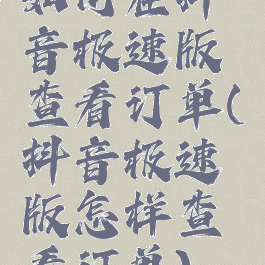 如何在抖
音极速版
查看订单(
抖音极速
版怎样查
看订单)